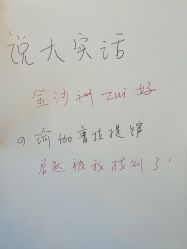 说大实话
金沙洲zui好
の瑜伽普拉提馆
居然被我找到了!